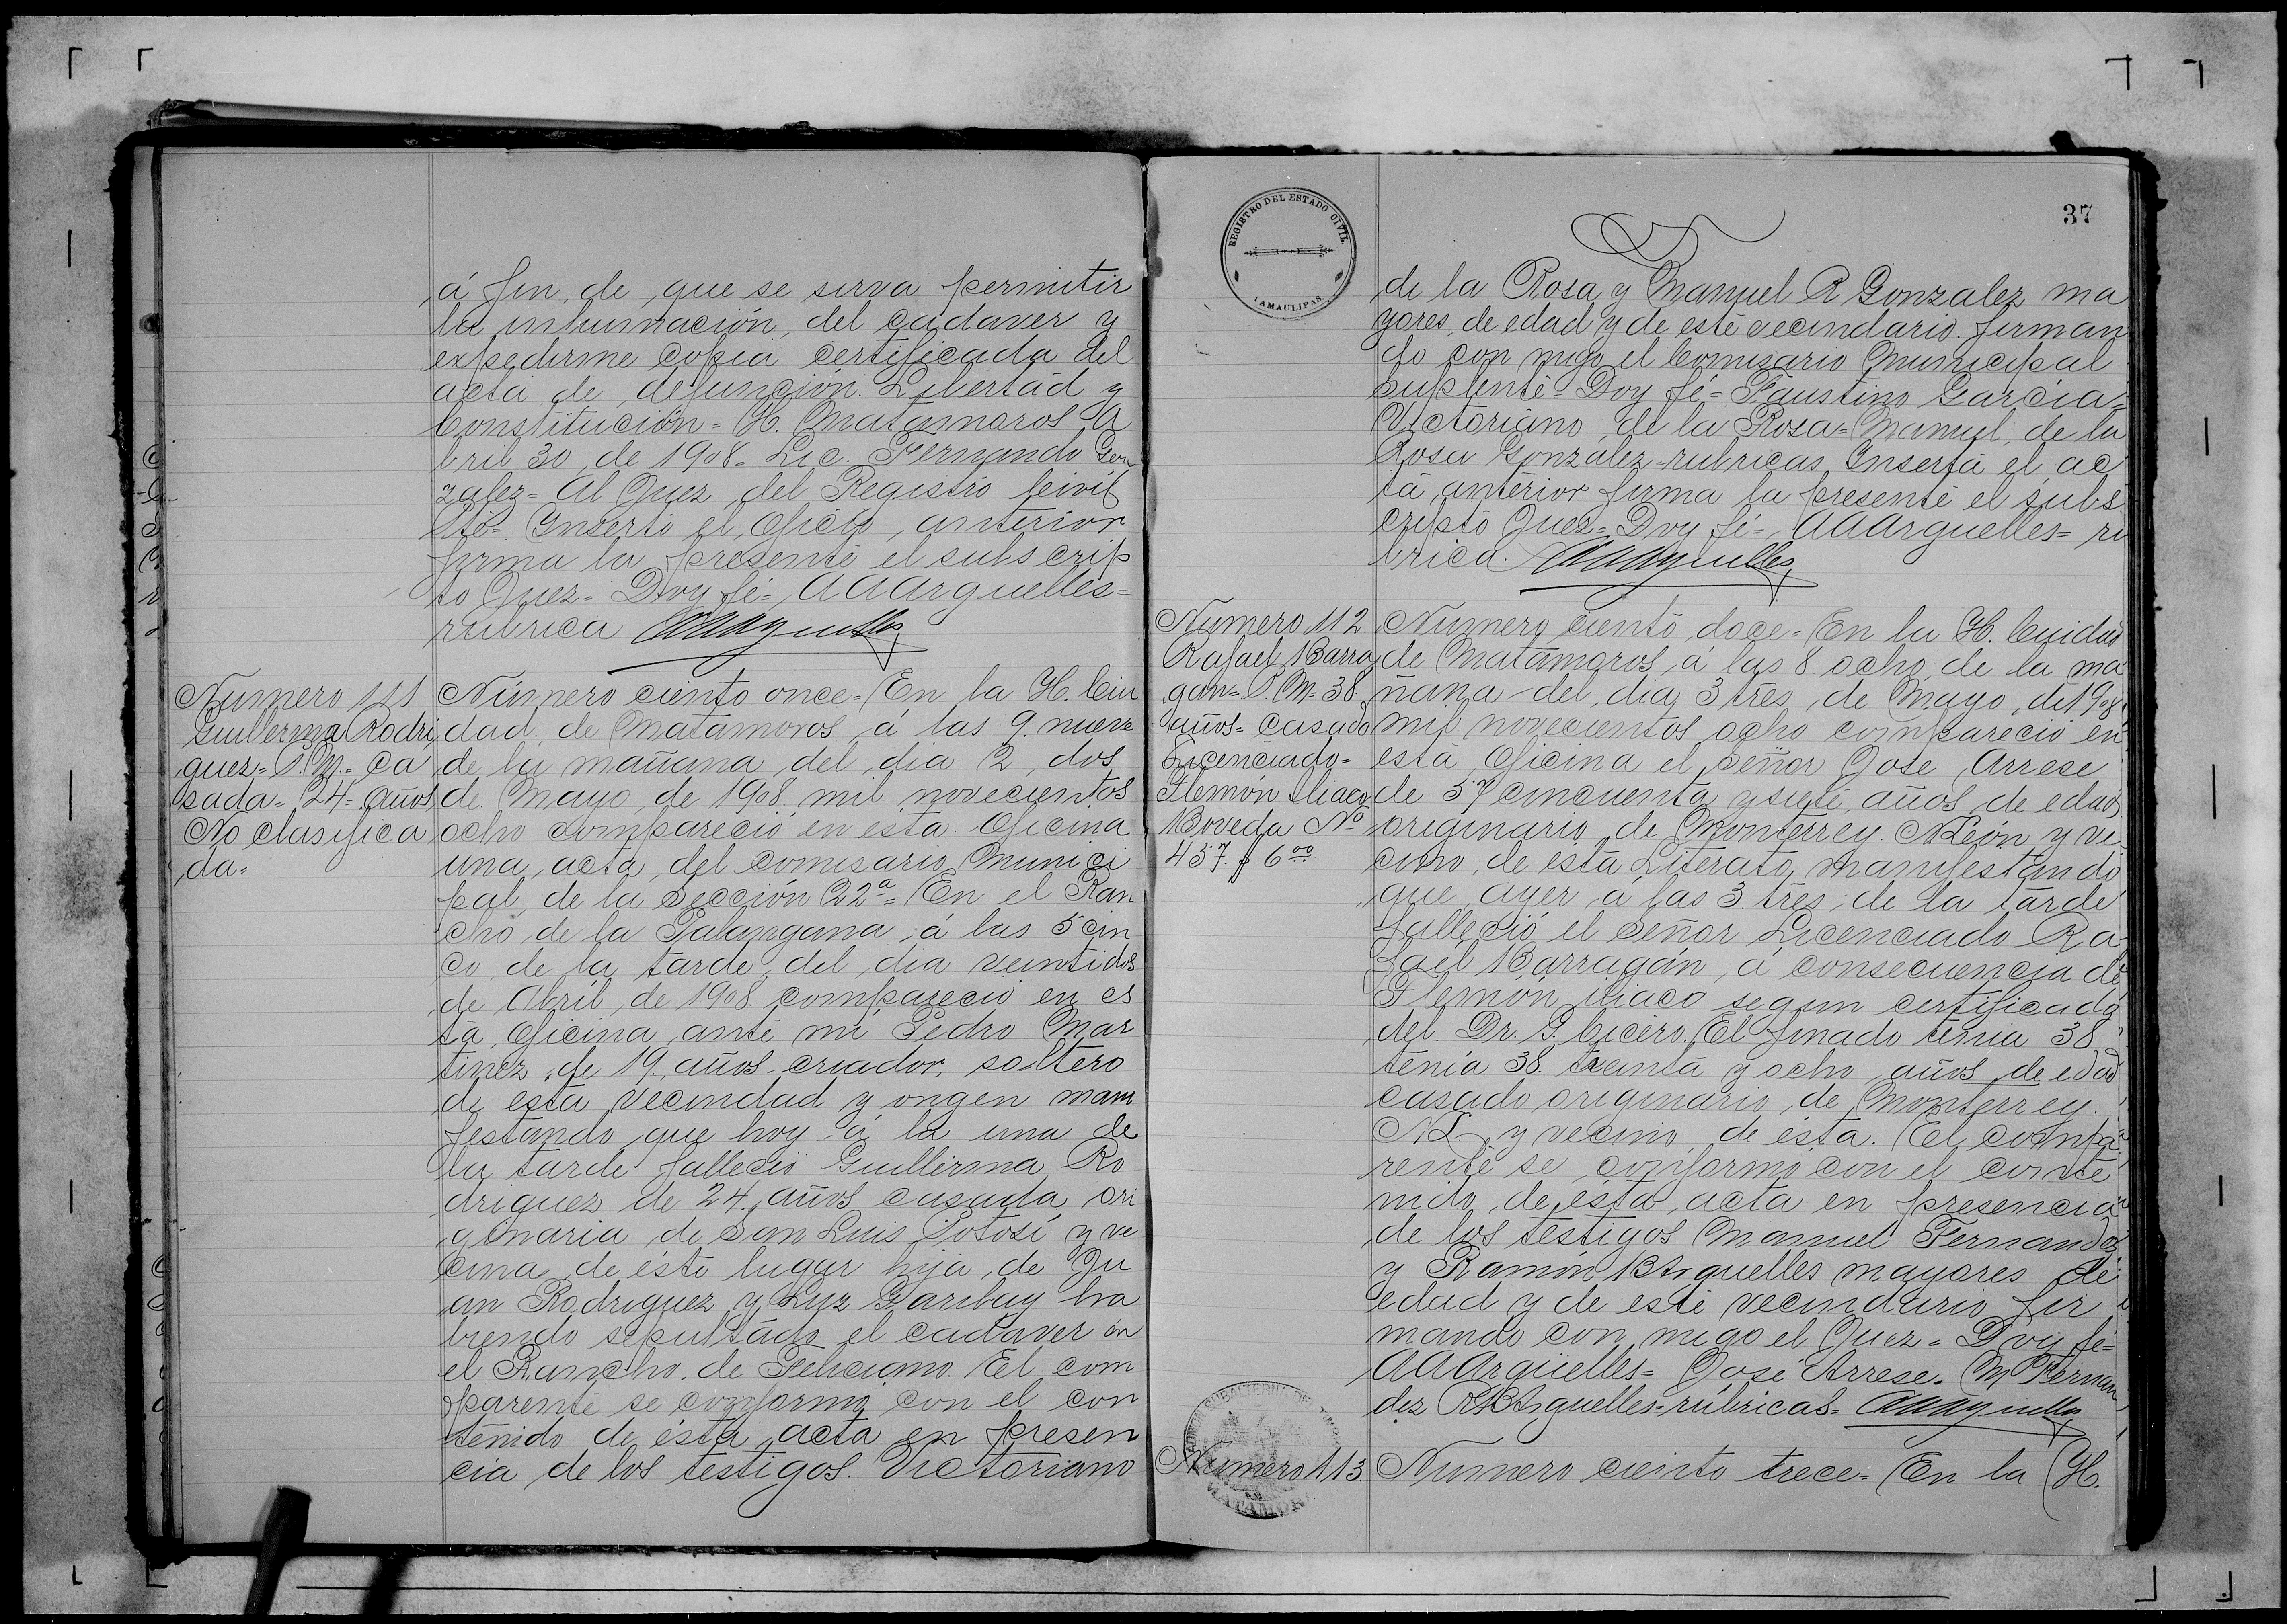 á fin de que se sirva permitir
la inhumación del cadaver y
expedirme copia certificada del
acta de defunción. Libertad y
Constitución = H. Matamoros A
bril 30 de 1908. Lic. Fernando Gon
zalez = Al Juez del Registro Civil
Pte = Inserto el Oficio anterior
firma la presente el subscrip
to Juez = Doy fé = AAArguelles =
rubrica AAArguelles
Numero 111
Guillerma Rodri
guez = P. M. = Ca
sada = 24 = años
No clasifica
da =
Número ciento once = En la H. Ciu
dad de Matamoros á las 9. nueve
de la mañana del dia 2 dos
de Mayo de 1908. mil novecientos
ocho compareció en esta Oficina
una acta del comisario Munici
pal de la Sección 22ª = En el Ran
cho de la Palangana á las 5 cin
co de la tarde del dia veintidos
de Abril de 1908 compareció en es
ta Oficina ante mi Pedro Mar
tinez de 19 años criador, soltero
de esta vecindad y origen mani
festando que hoy á la una de
la tarde falleció Guillerma Ro
driguez de 24 años casada ori
ginaria de San Luis Potosí y ve
cina de éste lugar hija de Ju
an Rodriguez y Luz Garibay ha
biendo sepultado el cadaver en
el Rancho de Feliciano. El com
parente se conformó con el con
tenido de ésta acta en presen
cia de los testigos. Victoriano
REGISTRO DEL ESTADO CIVIL
TAMAULIPAS
37
de la Rosa y Manuel R Gonzalez ma
yores de edad y de este vecindario firman
do con migo el Comisario Municipal
suplente = Doy fé = Faustino Garcia =
Victoriano de la Rosa = Manuel de la
Rosa Gonzalez = rubricas Inserta el ac
ta anterior firma la presente el subs
cripto Juez = Doy fé = AAArguelles = ru
brica. AAArguelles
Numero 112
Rafael Barra
gan = P. M = 38
años = Casado
Licenciado =
Flemón Iliaco
Boveda No
457. $ 6 00
Numero ciento doce = En la H. Ciudad
de Matamoros á las 8. ocho de la ma
ñana del dia 3 tres de Mayo de 1908
mil novecientos ocho compareció en
esta Oficina el Señor Jose Arrese
de 57 cincuenta y siete años de edad
originario de Monterrey. N León y ve
cino de ésta Literato manifestando
que ayer á las 3. tres de la tarde
falleció el Señor Licenciado Ra
fael Barragán á consecuencia de
Flemón iliaco segun certificado
del Dr. G. Cicero. El finado tenia 38
tenía 38. treinta y ocho años de edad
casado originario de Monterrey.
N L y vecino de ésta. El compa
rente se conformó con el conte
nido de ésta acta en presencia
de los testigos Manuel Fernandez
y Ramón B Arguelles mayores de
edad y de este vecindario fir
mando con migo el Juez = Doy fé =
AAArgüelles = José Arrese = M Fernan
dez R B Arguelles = rúbricas = AAArguelles
Numero 113
Numero ciento trece = En la H.
SUBALTERNA
MATAMOROS